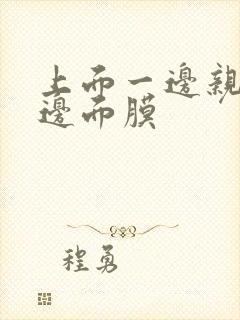 上而一邊親
邊而膜
程勇